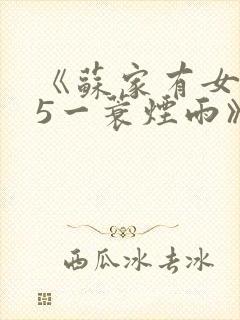 《蘇家有女
5一蓑煙雨》
西瓜冰去冰